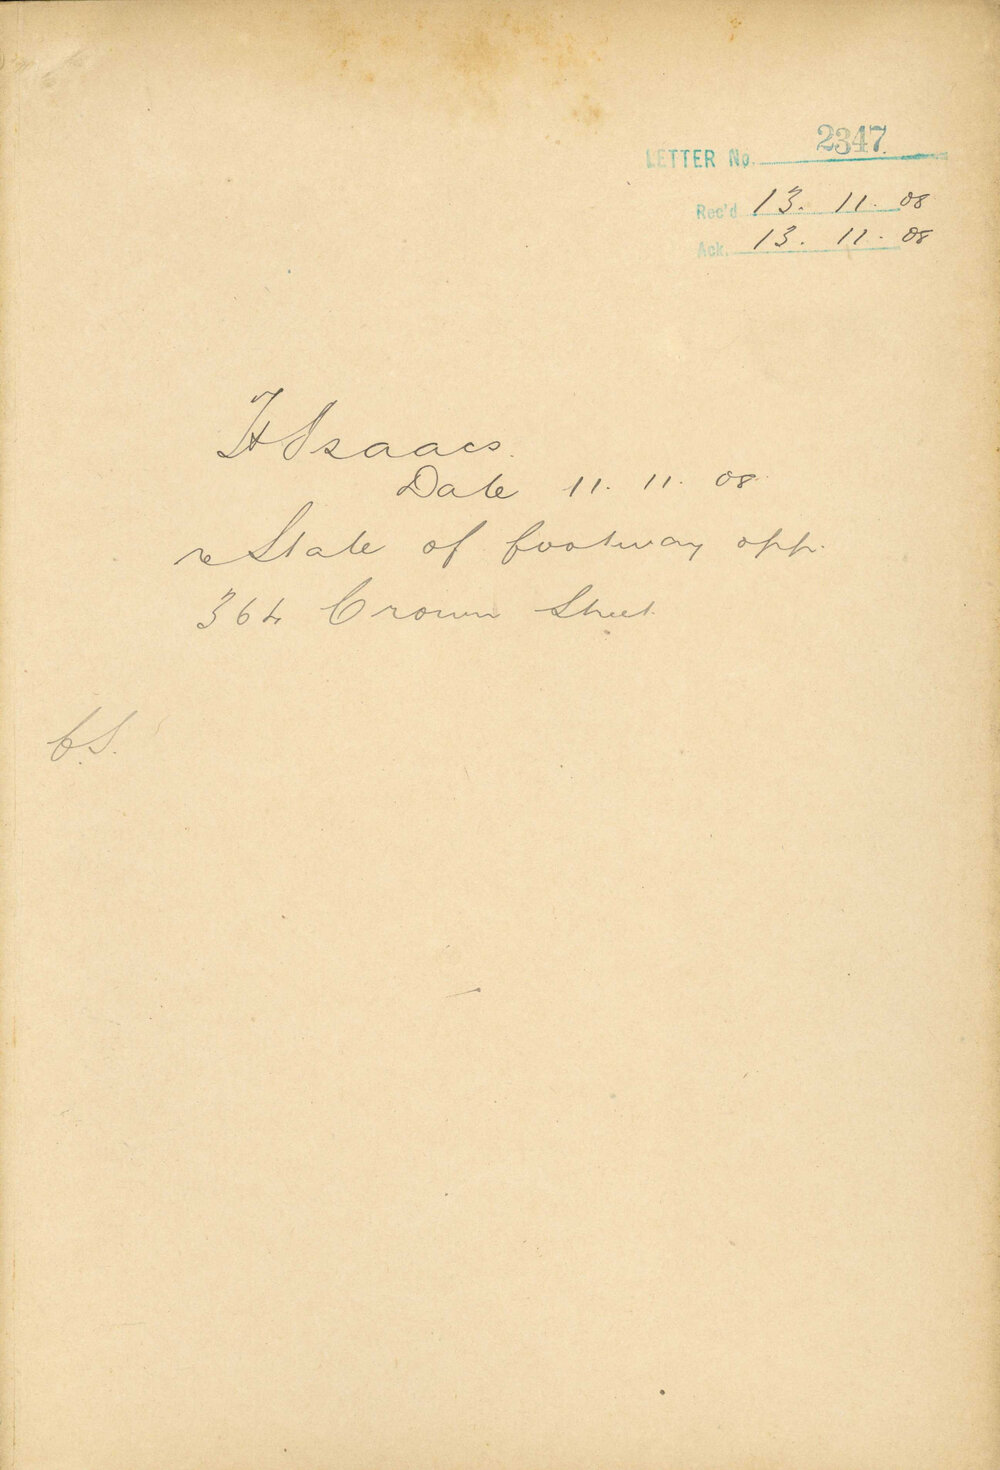 LETTER No. 2347
Rec'd 13. 11. 08
Ack. 13. 11. 08
H Isaacs.
Date 11. 11. 08
re State of footway opp.
364 Crown Street
C.S.